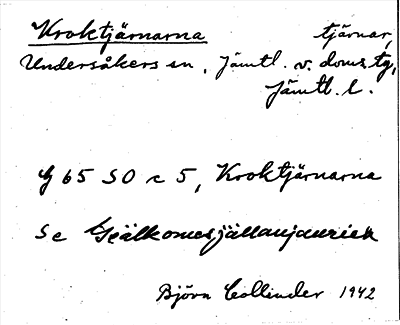 Kroktjärnarna tjärnar,
Undersåkers sn, Jämtl. v. doms. tg,
Jämtl. l.
G 65 SO c 5, Kroktjärnarna
Se Geälkomesjällaujauriek
Björn Collinder 1942